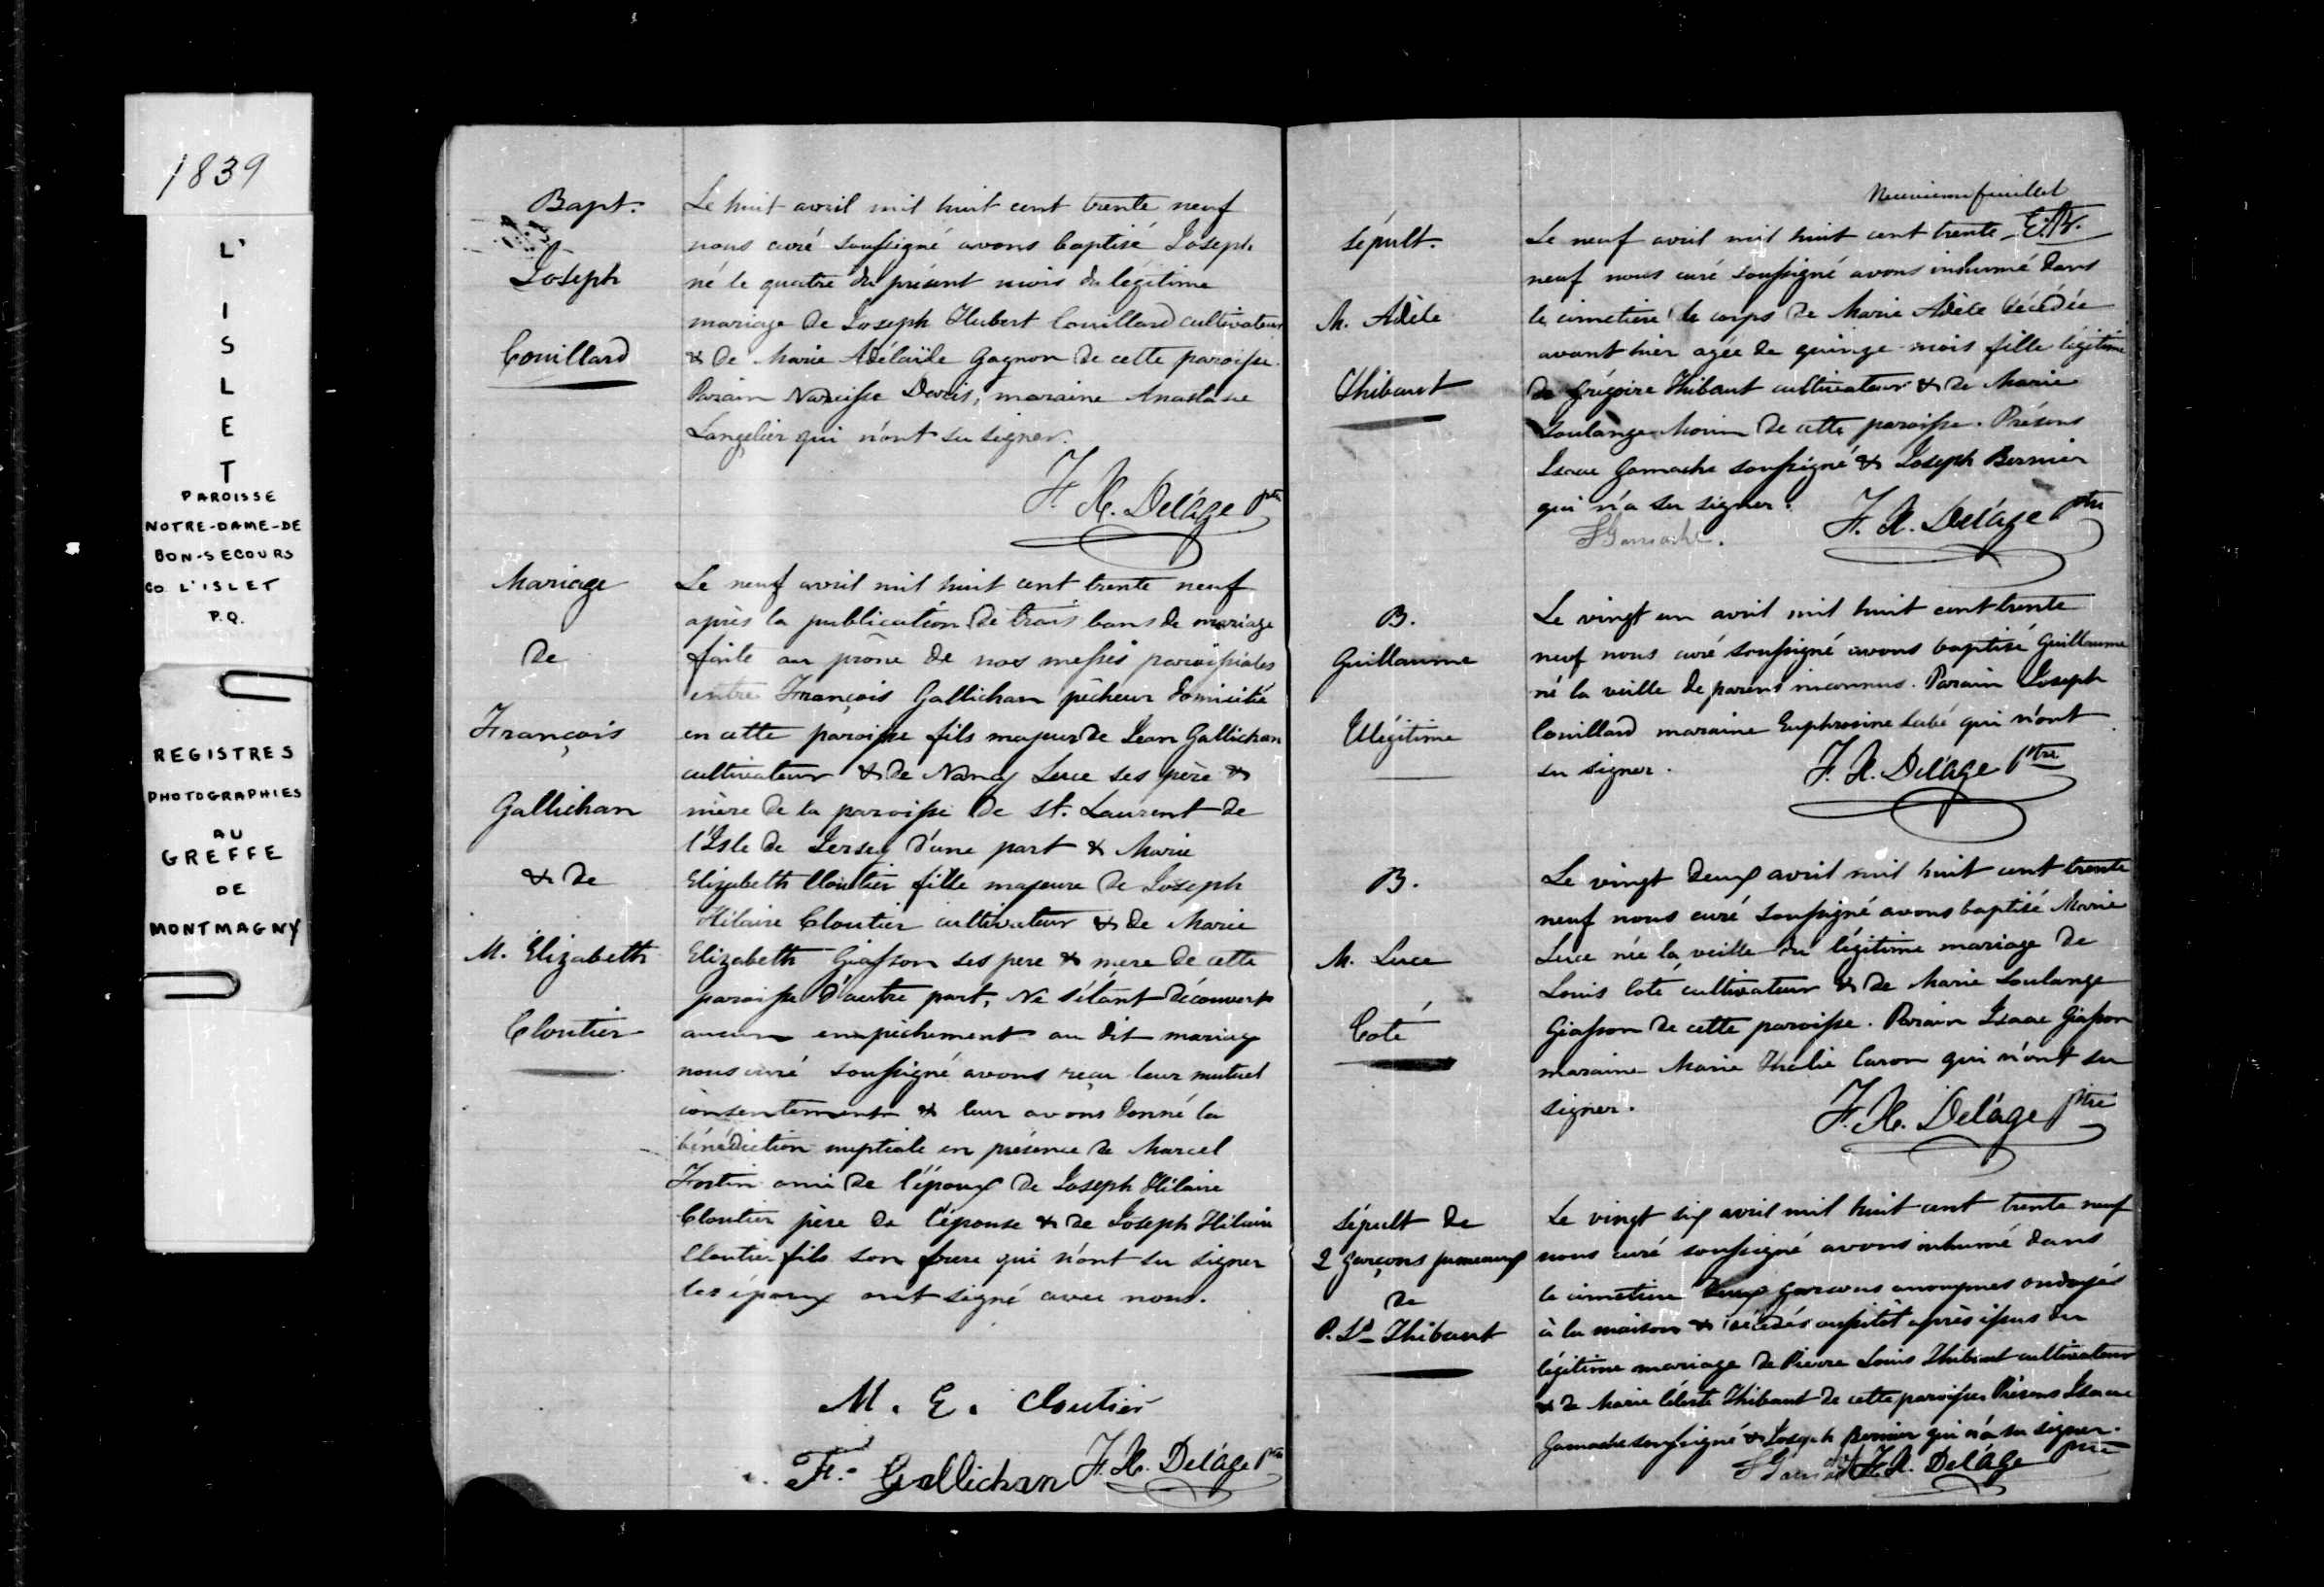 1839
L'
I
S
L
E
T
PAROISSE
NOTRE-DAME-DE
BON-SECOURS
CO L'ISLET
P.Q.
REGISTRES
PHOTOGRAPHIES
AU
GREFFE
DE
MONTMAGNY
Bapt.
Joseph
Couillard
Le huit avril mil huit cent trente neuf
nous curé soussigné avons baptisé Joseph
né le quatre du présent mois du légitime
mariage de Joseph Hubert Couillard cultivateur
& de Marie Adélaïde Gagnon de cette paroisse.
Parain Narcisse Davis, maraine Anastasie
Langelier qui n'ont su signer.
F. X. Delâge Ptre
Mariage
de
François
Gallichan
& de
M. Elizabeth
Cloutier
Le neuf avril mil huit cent trente neuf
après la publication de trois bans de mariage
faite au prône de nos messes paroissiales
entre François Gallichan pêcheur domicilié
en cette paroisse fils majeur de Jean Gallichan
cultivateur & de Nancy Luce ses père &
mère de la paroisse de St. Laurent de
l'Isle de Jersey d'une part & Marie
Elizabeth Cloutier fille majeure de Joseph
Hilaire Cloutier cultivateur & de Marie
Elizabeth Giasson ses pere & mere de cette
paroisse d'autre part, Ne s'étant découvert
aucun empêchement au dit mariage
nous curé soussigné avons reçu leur mutuel
consentement & leur avons donné la
bénédiction nuptiale en présence de Marcel
Fortin ami de l'époux de Joseph Hilaire
Cloutier père de l'épouse & de Joseph Hilaire
Cloutier fils son frere qui n'ont su signer
les époux ont signé avec nous.
M. E. Cloutier
Fs. Gallichan F. X. Delâge Ptre
Neuvieme feuillet
Sépult.
M. Adèle
Thibaut
Le neuf avril mil huit cent trente
neuf nous curé soussigné avons inhumé dans
le cimetière le corps de Marie Adèle décédée
avant hier agée de quinze mois fille légitime
de Grégoire Thibaut cultivateur & de Marie
Soulange Morin de cette paroisse. Présens
Isaac Gamache soussigné & Joseph Bernier
qui n'a su signer.
Gamache. F. X. Delâge Ptre
B.
Guillaume
Illégitime
Le vingt un avril mil huit cent trente
neuf nous curé soussigné avons baptisé Guillaume
né la veille de parens inconnus. Parain Joseph
Couillard maraine Euphrosine Labé qui n'ont
su signer.
F. X. Delâge Ptre
B.
M. Luce
Coté
Le vingt deux avril mil huit cent trente
neuf nous curé soussigné avons baptisé Marie
Luce née la veille du légitime mariage de
Louis Coté cultivateur & de Marie Soulange
Giasson de cette paroisse. Parain Isaac Giasson
maraine Marie Thalie Caron qui n'ont su
signer.
F. X. Delâge Ptre
Sépult de
2 garçons jumeaux
de
P. Ls Thibaut
Le vingt six avril mil huit cent trente neuf
nous curé soussigné avons inhumé dans
le cimetière deux garcons anonymes ondoyés
à la maison & décédés aussitôt après issus du
légitime mariage de Pierre Louis Thibaut cultivateur
& de Marie Céleste Thibaut de cette paroisse. Présens Isaac
Gamache soussigné & Joseph Bernier qui n'a su signer.
F. X. Delâge Ptre